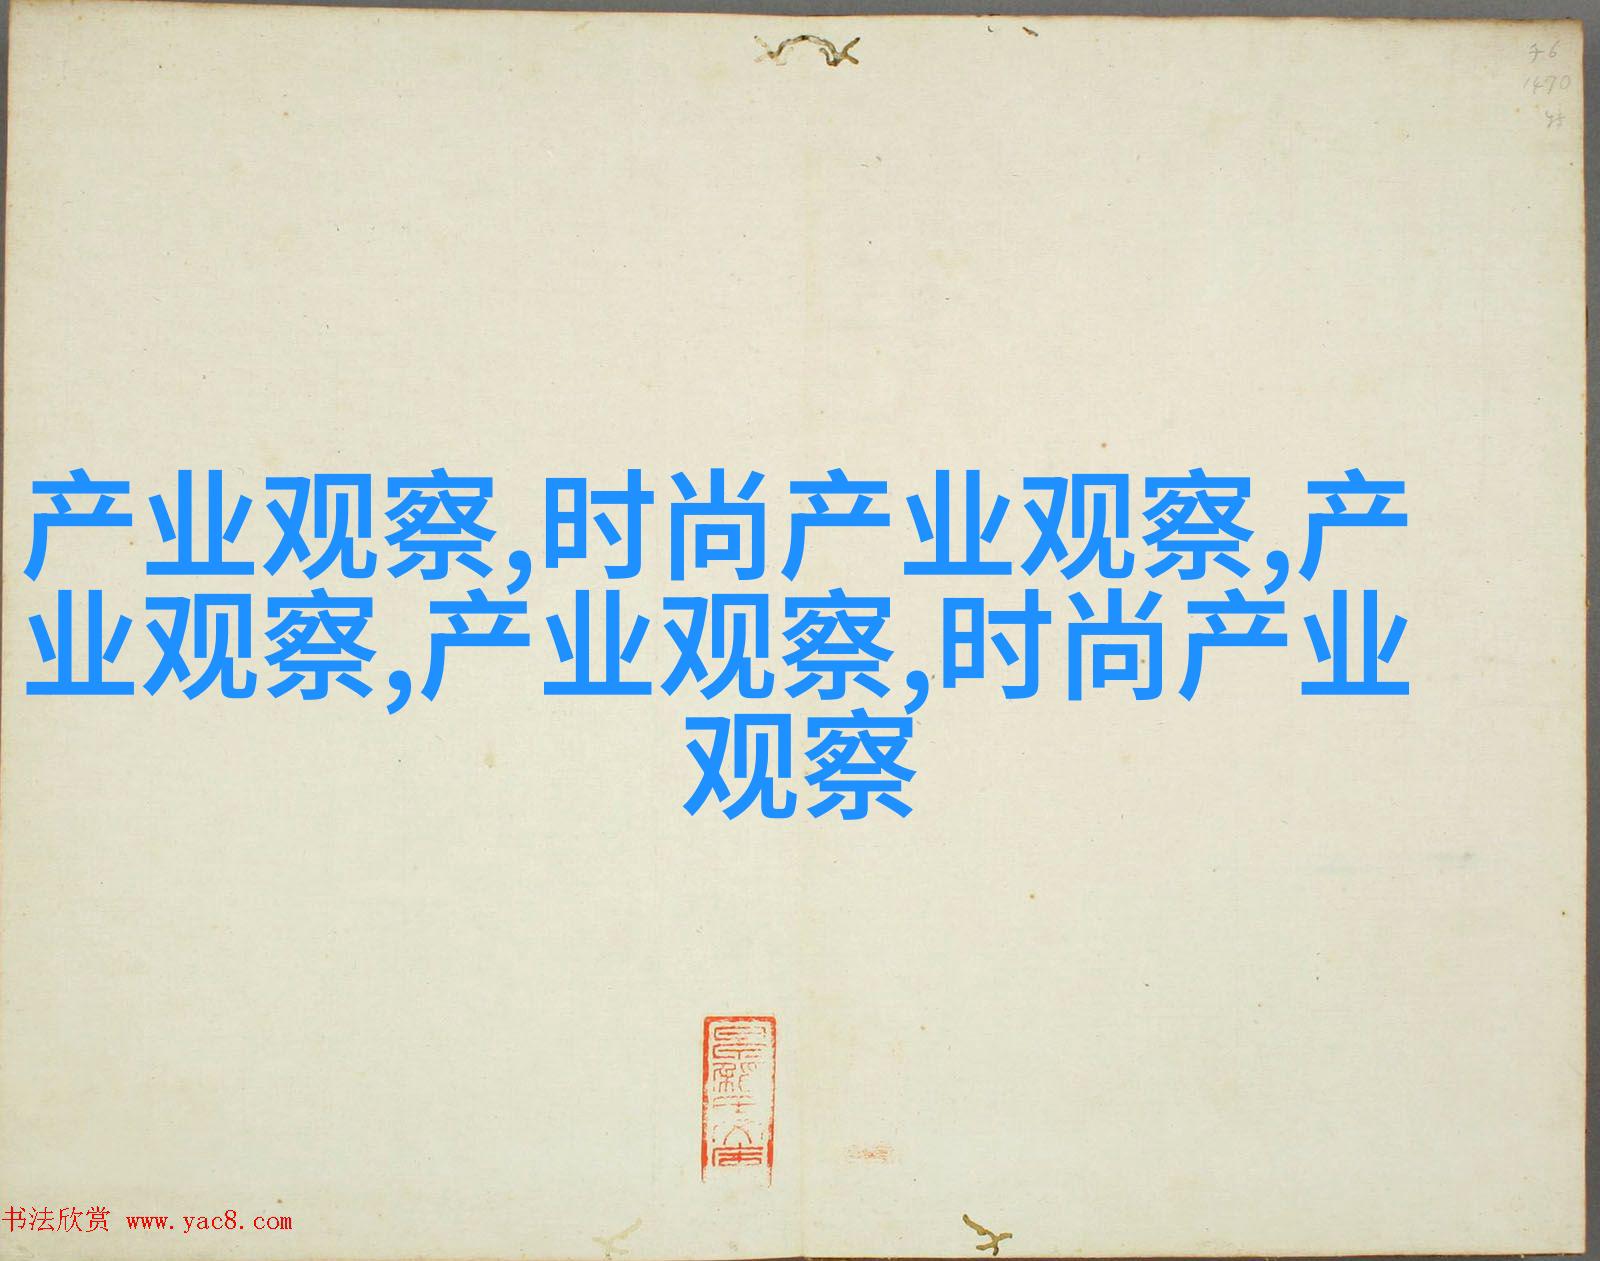 子6
1470
产业观察,时尚产业观察,产
业观察,产业观察,时尚产业
观察
书法欣赏 www.yac8.com